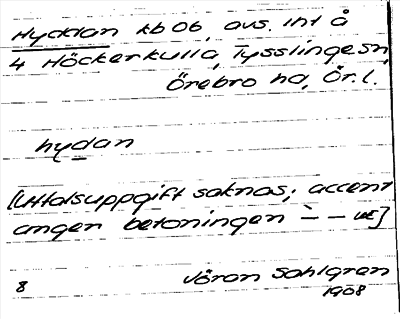 Hycklan kb 06, avs. int å
4 Höckerkulla, Tysslinge sn,
Örebro hd, Ör. l.
hydan
[Uttalsuppgift saknas; accent
anger betoningen
Jöran Sahlgren
8 1908